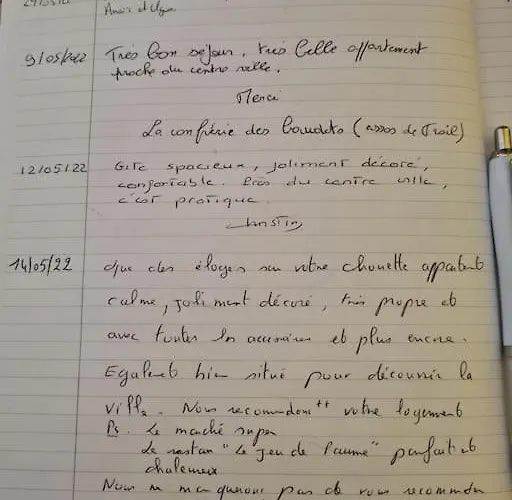 Anaïs et
9/05/2022 Très bon séjour, très belle appartement
proche du centre ville.
Merci
La confrérie des baudets (assos de Trail)
12/05/22 Gite spacieux, joliment décoré,
confortable. Près du centre ville,
c'est pratique.
14/05/22 Que des éloges sur votre chouette appartent
calme, joliment décoré, très propre et
avec toutes les accessoires et plus encore.
Egalent bien situé pour découvrir la
ville. Nous recommdons ++ votre logement
Ps. Le marché super
Le restau "Le Jeu de Paume" parfait et
chaleureux
Nous ne manquerons pas de vous recommder